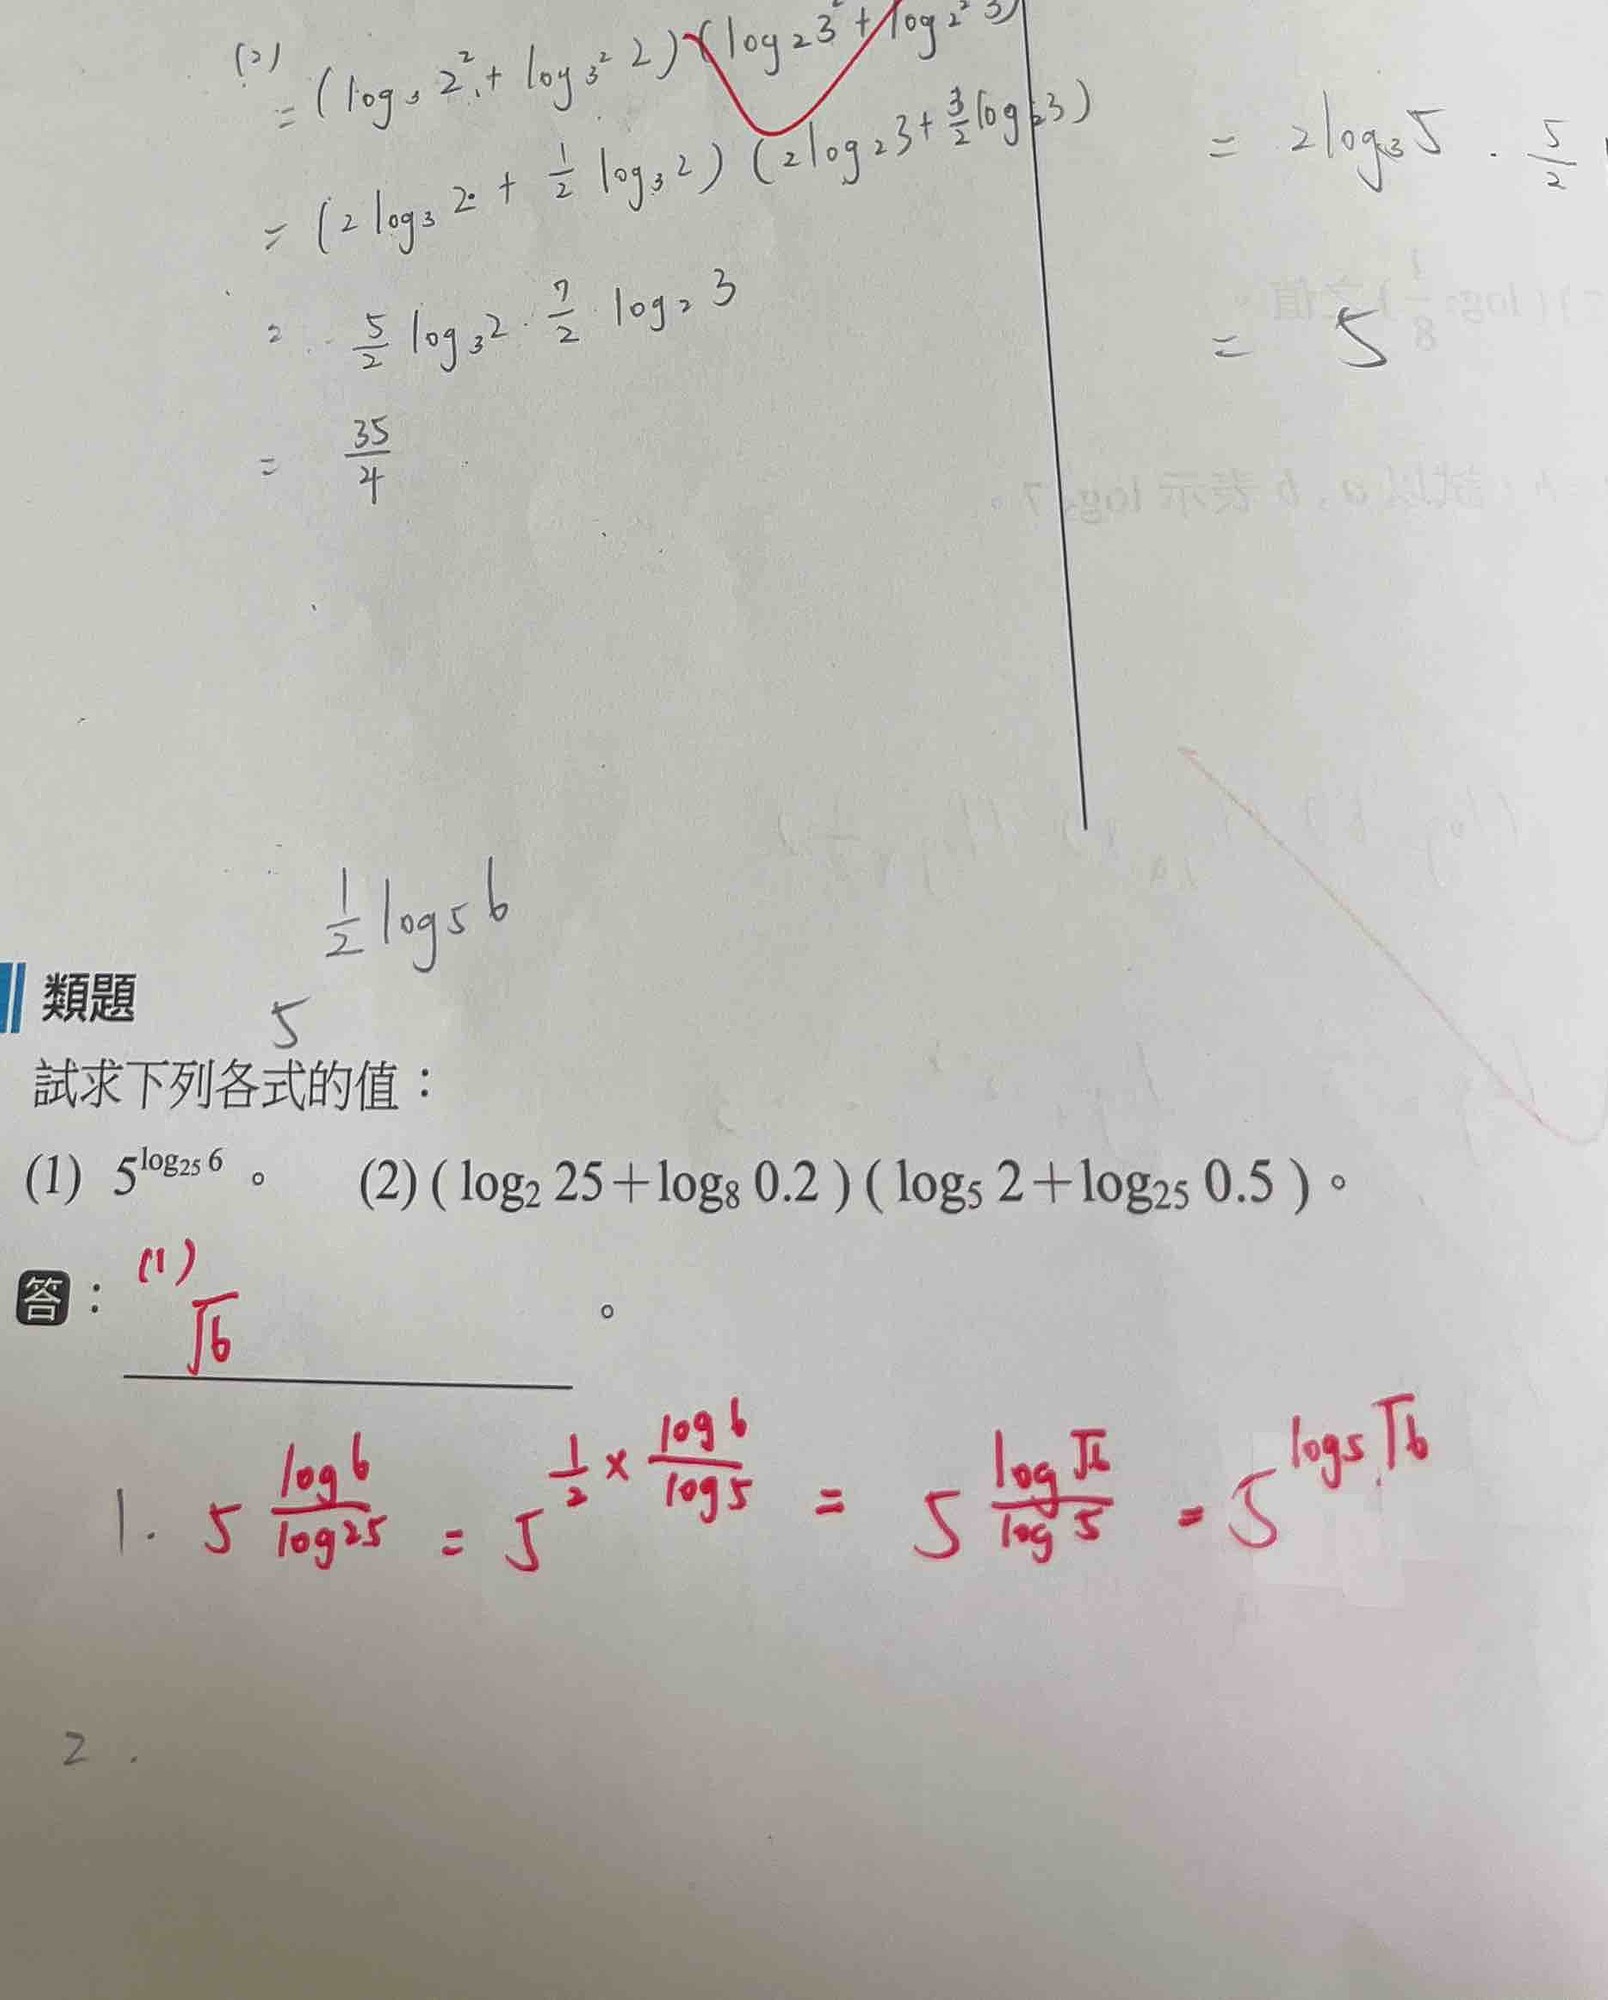 (2)
= (log₃ 2² + log₃² 2) (log₂ 3² + log₂² 3
= (2 log₃ 2 + 1/2 log₃ 2) (2 log₂ 3 + 3/2 log₂ 3)
= 5/2 log₃ 2 · 7/2 log₂ 3
= 35/4
= 2 log₃ 5 · 5/2
= 5
1/2 log₅ 6
5
類題
試求下列各式的值：
(1) 5^{log₂₅ 6}。 (2) ( log₂ 25＋log₈ 0.2 ) ( log₅ 2＋log₂₅ 0.5 )。
答：(1) √6 。
1. 5^{log6/log25} = 5^{1/2 × log6/log5} = 5^{log√6/log5} = 5^{log₅√6}
2.